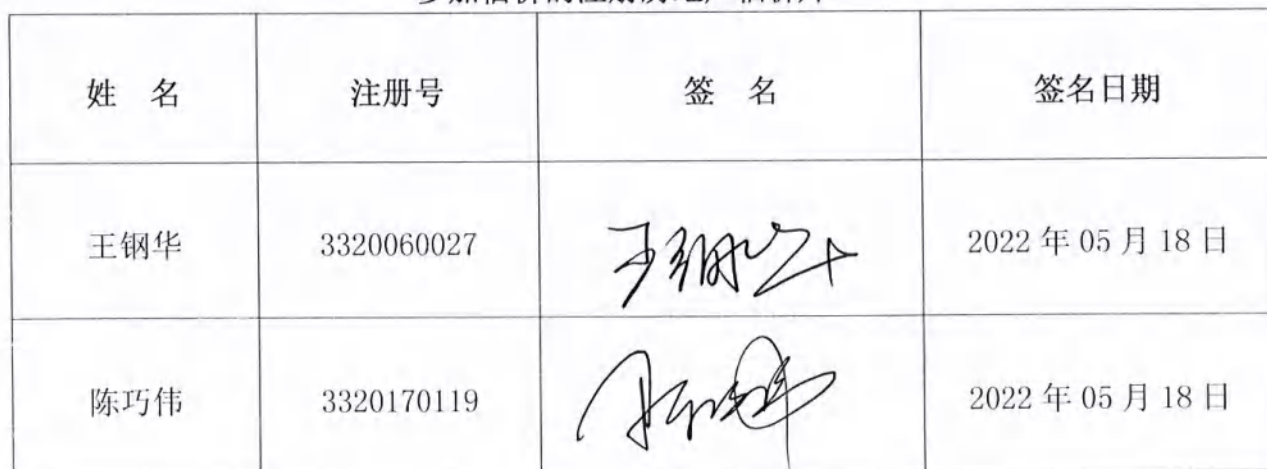 姓 名 注册号 签 名 签名日期
王钢华 3320060027 王钢华 2022 年 05 月 18 日
陈巧伟 3320170119 2022 年 05 月 18 日